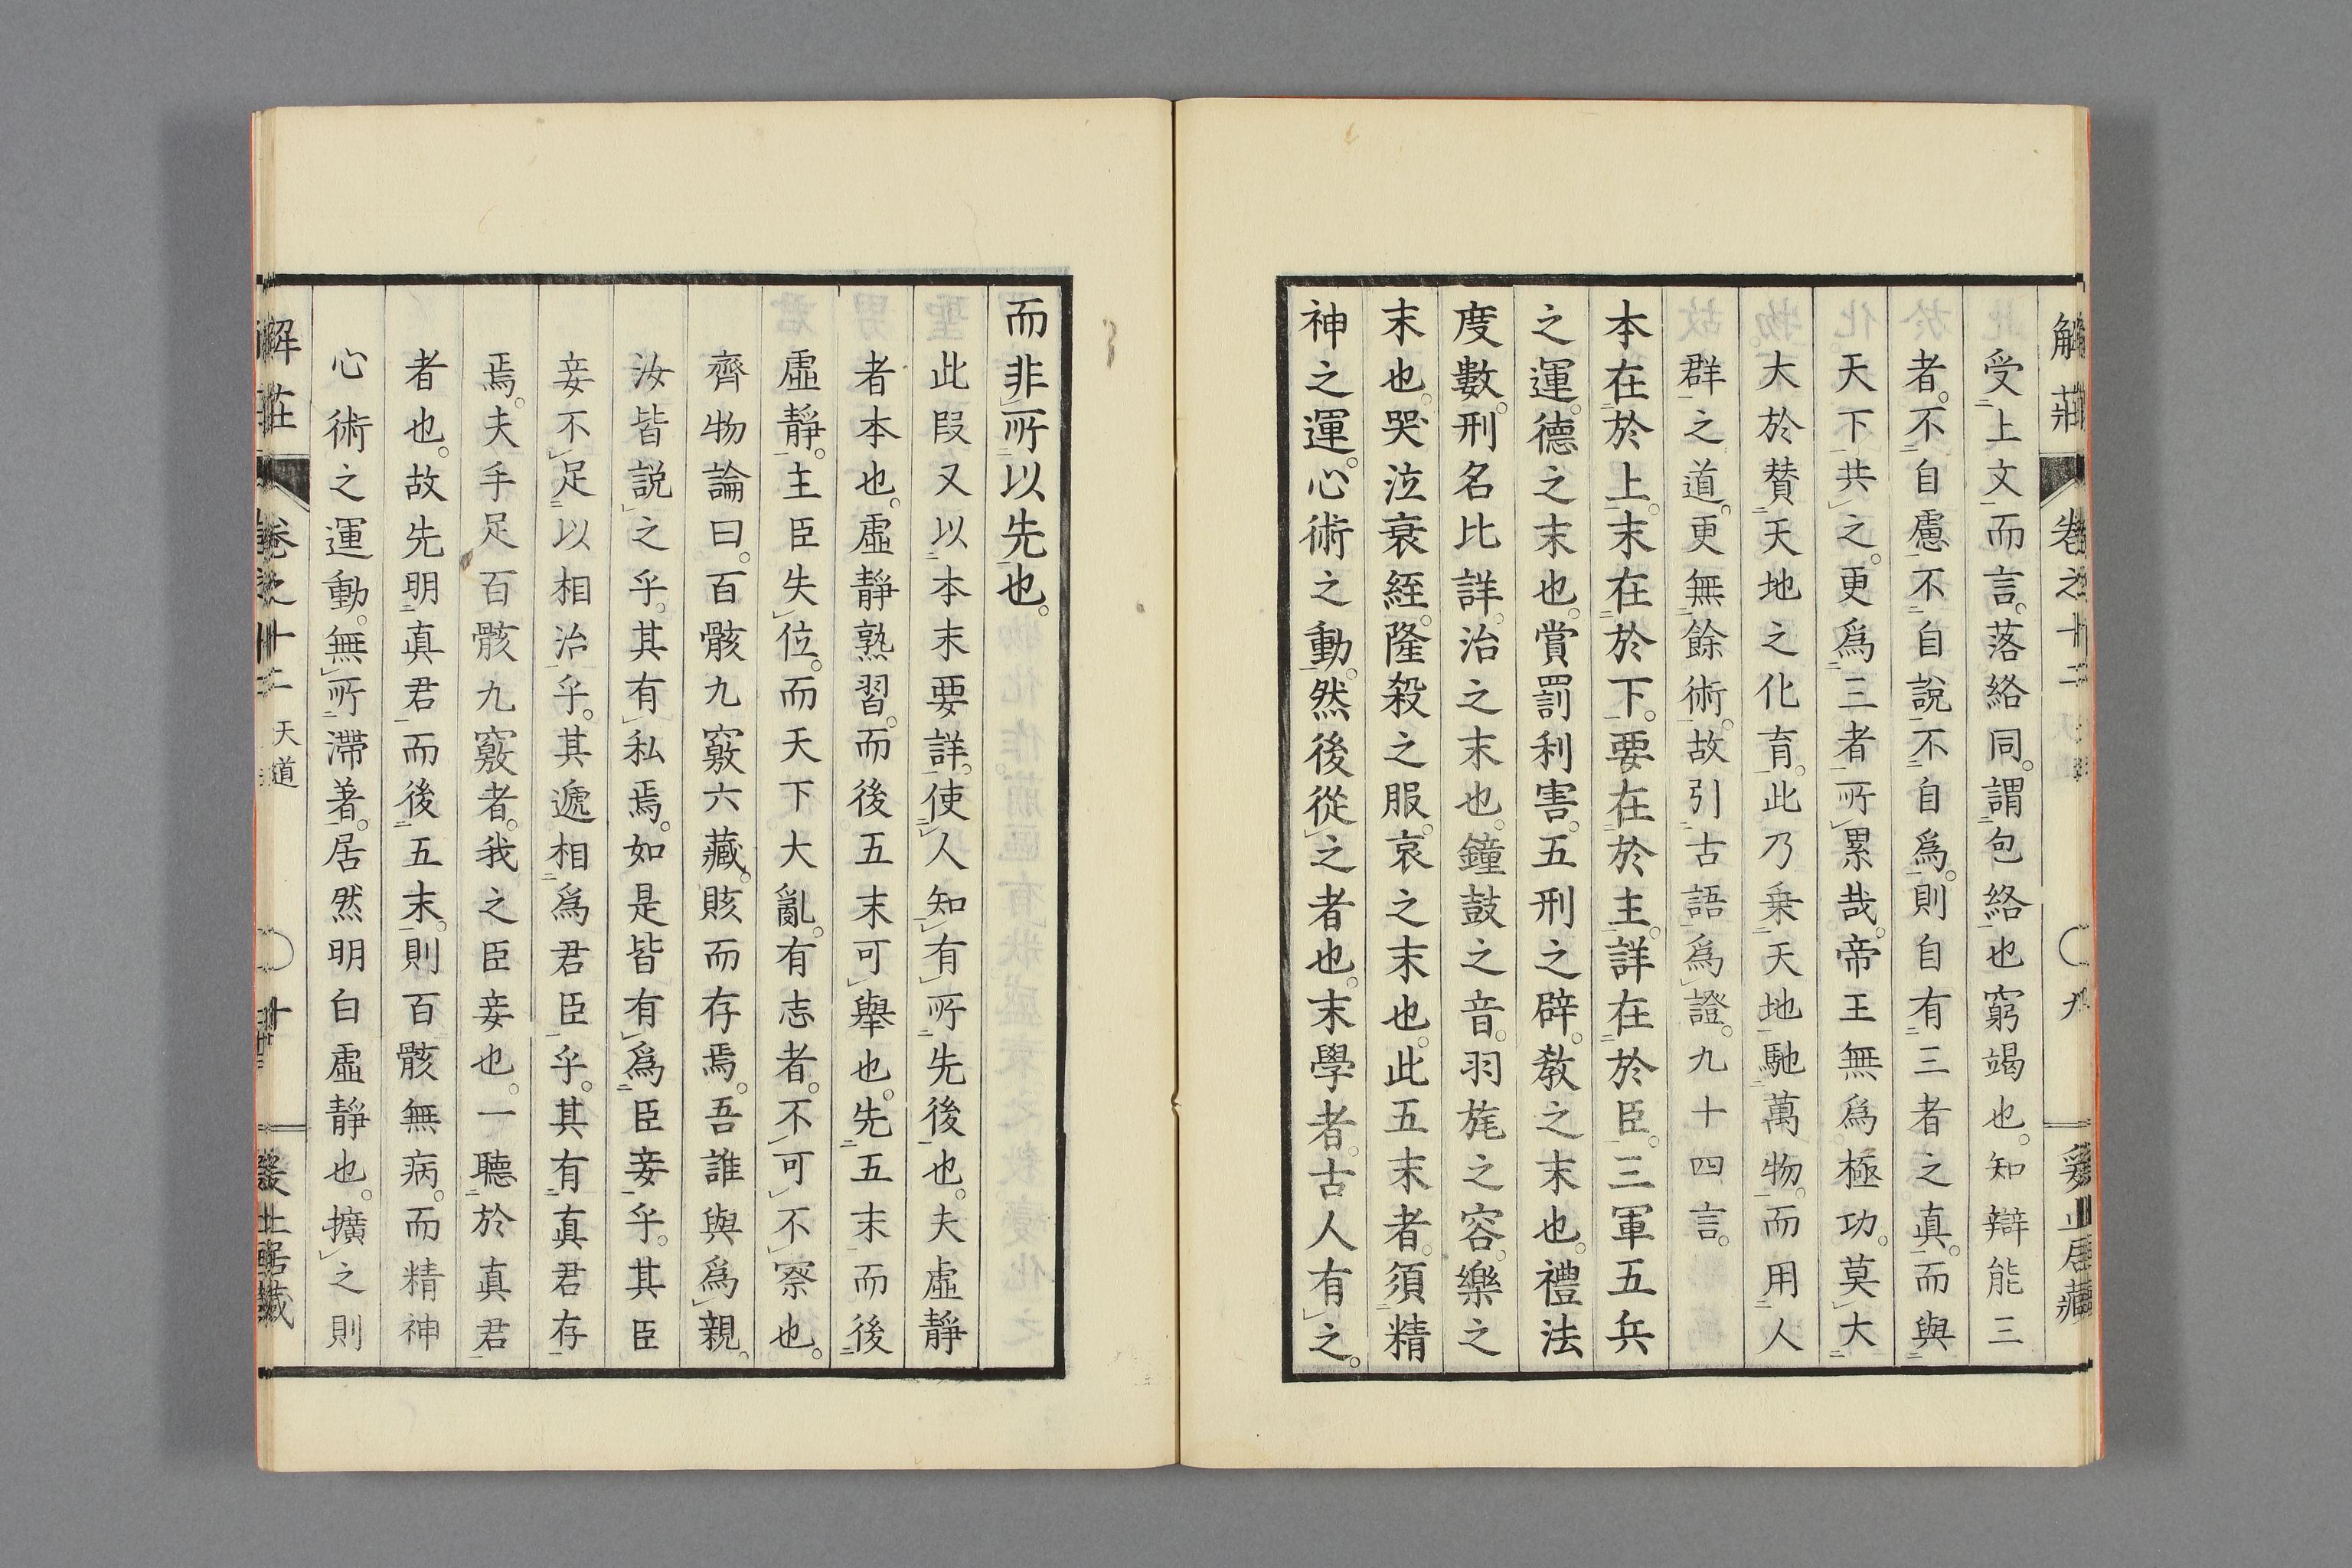 解莊 卷之十二 九
受上文而言。落絡同。謂包絡也窮竭也。知辯能三
者。不自慮不自說不自爲。則自有三者之真。而與
天下共之。更爲三者所累哉。帝王無爲極功。莫大
大於賛天地之化育。此乃乗天地馳萬物。而用人
群之道。更無餘術。故引古語爲證。九十四言。
本在於上。末在於下。要在於主。詳在於臣。三軍五兵
之運。德之末也。賞罰利害。五刑之辟。教之末也。禮法
度數。刑名比詳。治之末也。鐘鼓之音。羽旄之容。樂之
末也。哭泣衰絰。隆殺之服。哀之末也。此五末者。須精
神之運。心術之動。然後從之者也。末學者。古人有之。
而非所以先也。
此段又以本末要詳。使人知有所先後也。夫虛靜
者本也。虛靜熟習。而後五末可舉也。先五末而後
虛靜。主臣失位。而天下大亂。有志者。不可不察也。
齊物論曰。百骸九竅六藏。賅而存焉。吾誰與爲親。
汝皆説之乎。其有私焉。如是皆有爲臣妾乎。其臣
妾不足以相治乎。其遞相爲君臣乎。其有真君存
焉。夫手足百骸九竅者。我之臣妾也。一聽於真君
者也。故先明真君而後五末。則百骸無病。而精神
心術之運動。無所滯著。居然明白虛靜也。擴之則
解莊 卷之十二 天道 十